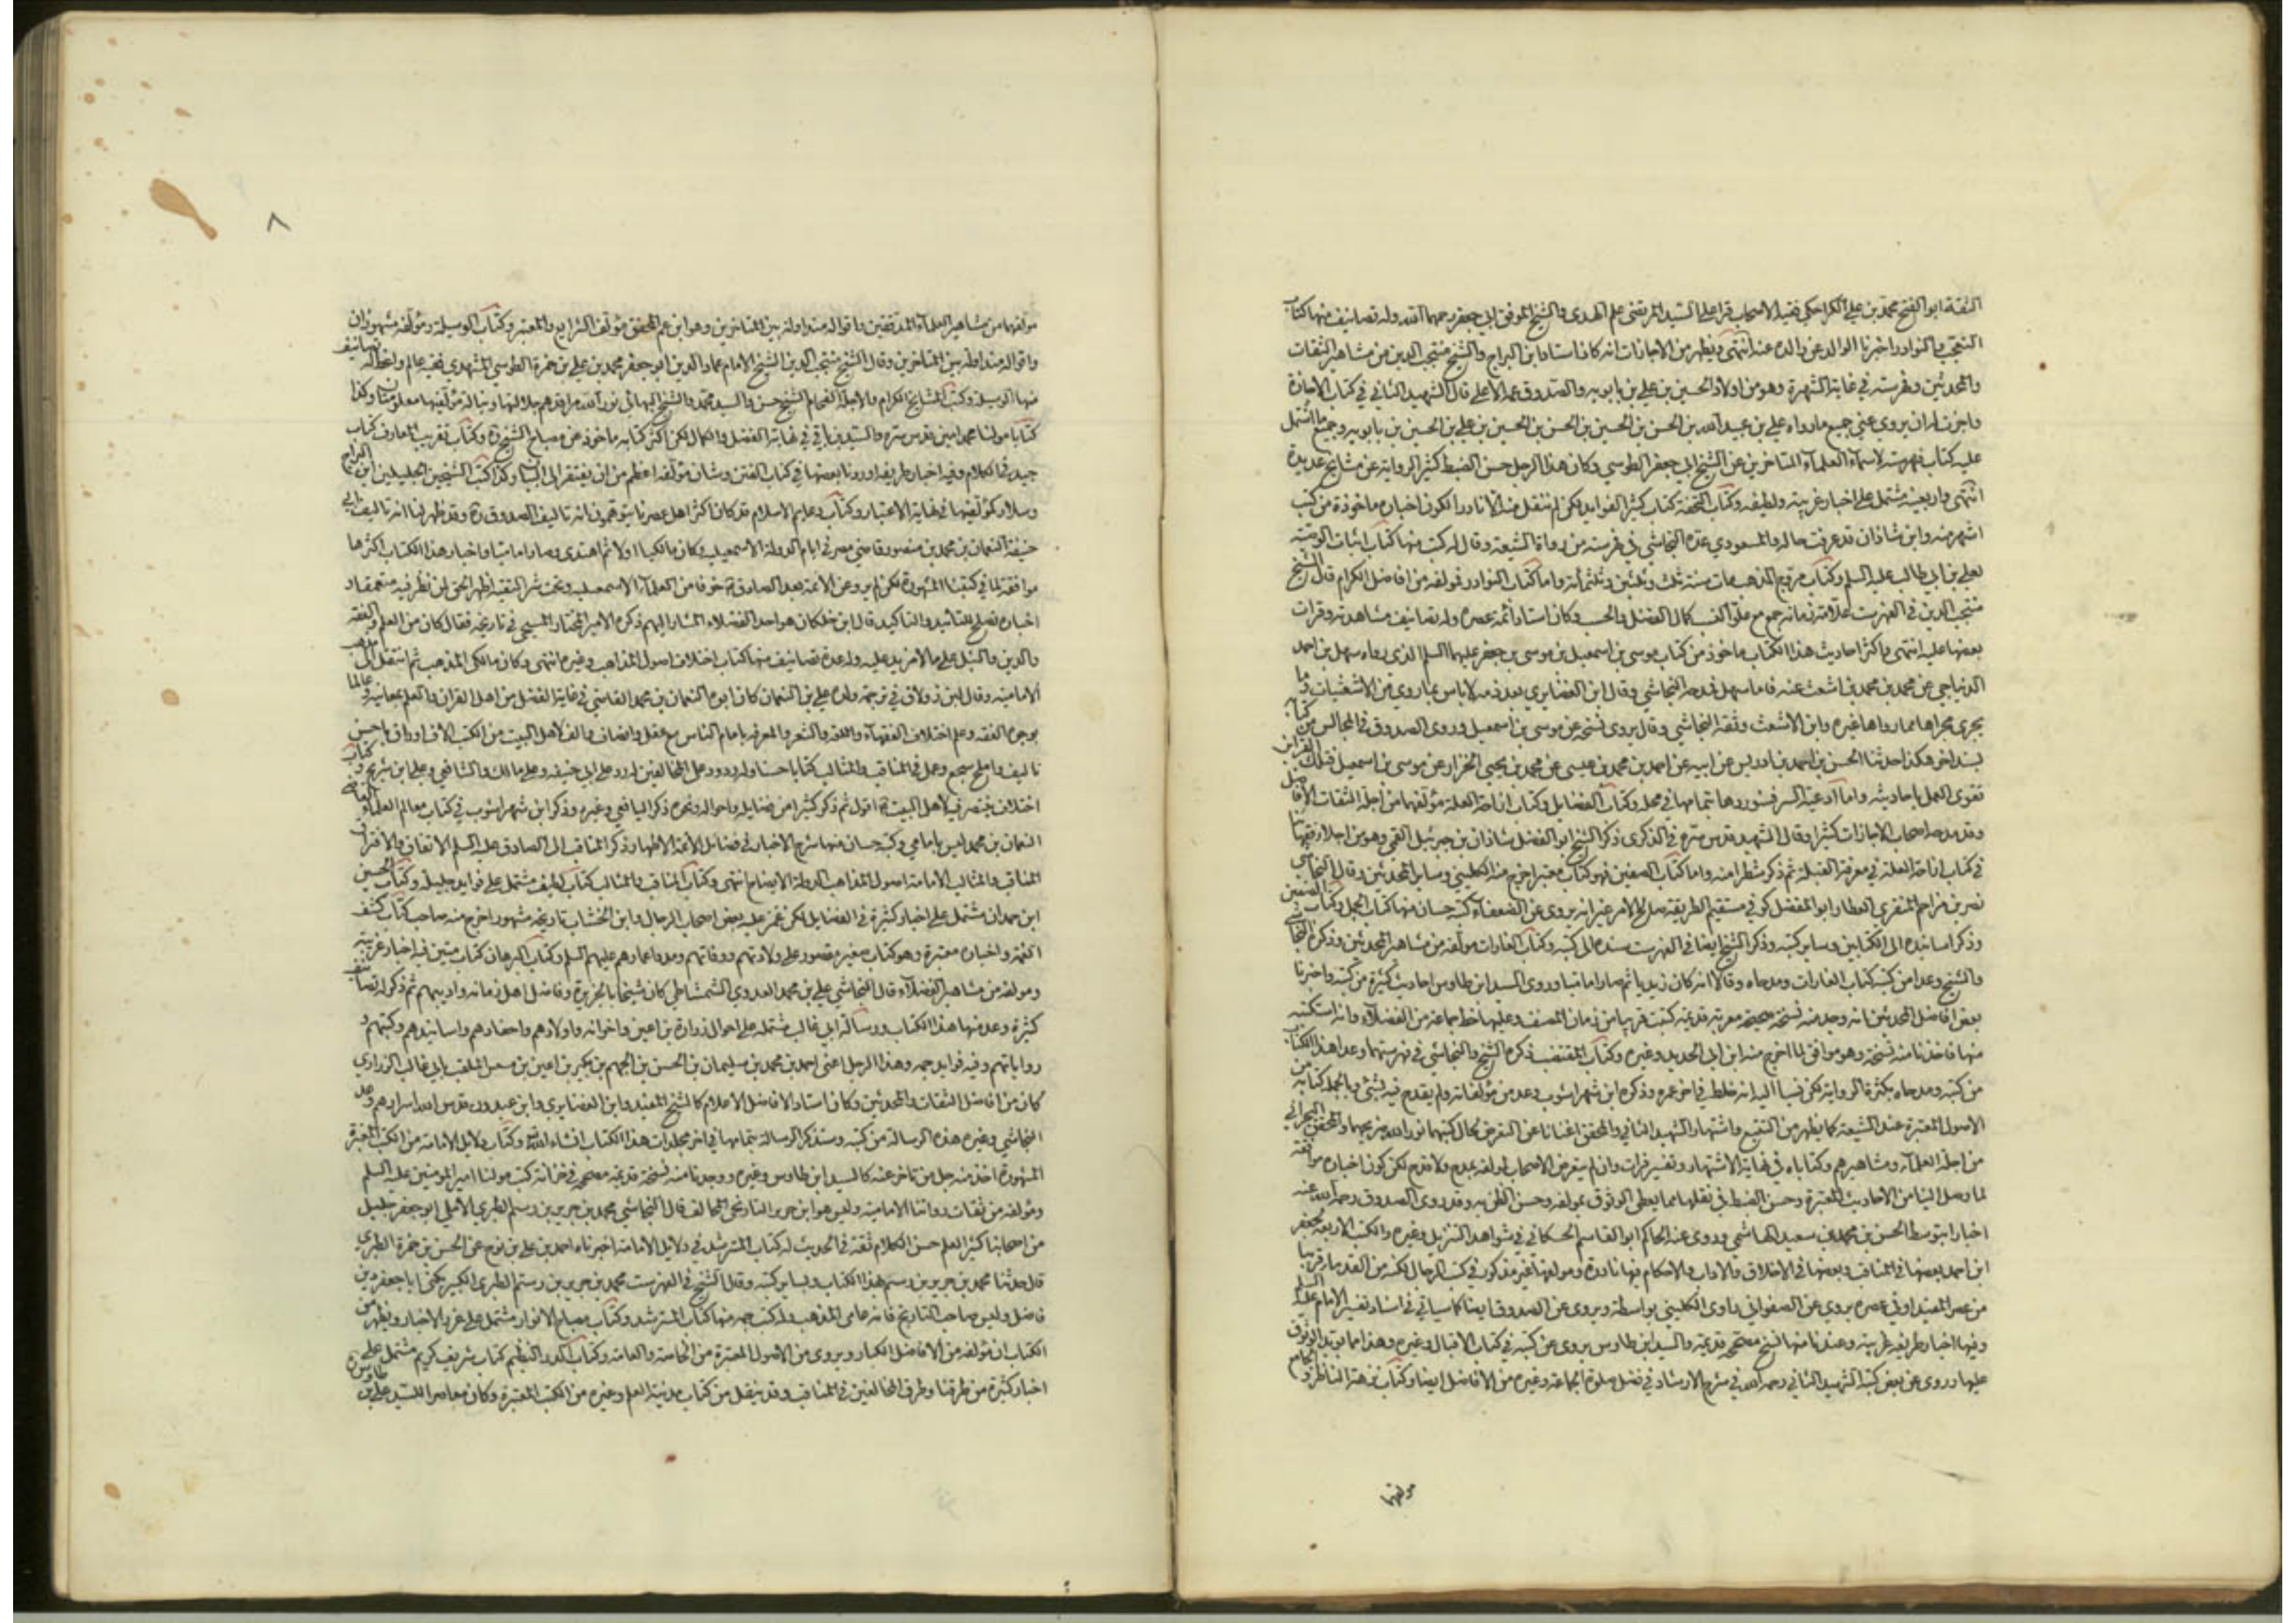 الثقة ابو الفتح محمد بن علي الكراجكي فقيه الاصحاب قرا على السيد المرتضى علم الهدى والشيخ الموفق ابي جعفر رحمهما الله وله تصانيف منها كتاب
التعجب والنوادر اخبرنا الوالد عن والده عنه انتهى ويظهر من الاجازات انه كان استاد ابن البراج والشيخ منتجب الدين من مشاهير الثقات
والمحدثين وفهرسته في غاية الشهرة وهو من اولاد الحسين بن علي بن بابويه والصدوق عمه الاعلى قال الشهيد الثاني في كتاب الاجازة
واجزت له ان يروي عني جميع ما رواه علي بن عبيد الله بن الحسن بن الحسين بن الحسن بن الحسين بن علي بن الحسين بن بابويه وجميع ما اشتمل
عليه كتاب فهرسته لاسماء العلماء المتاخرين عن الشيخ ابي جعفر الطوسي وكان هذا الرجل حسن الضبط كثير الرواية عن مشايخ عديدة
انتهى واربعينه مشتمل على اخبار غريبة ولطيفة وكتاب التحفة كتاب كثير الفوايد لكن لم ننقل منه الا نادرا لكون اخباره ماخوذة من كتب
اشهر منه وابن شاذان قد عرفت حاله والمسعودي عده النجاشي في فهرسته من رواة الشيعة وقال له كتب منها كتاب اثبات الوصية
لعلي بن ابي طالب عليه السلم وكتاب مروج الذهب مات سنة ثلث وثلثين وثلثمائة واما كتاب النوادر فمولفه من افاضل الكرام قال الشيخ
منتجب الدين في الفهرست علامة زمانه جمع مع علو النسب كمال الفضل والحسب وكان استاد ائمة عصره وله تصانيف شاهدته وقرات
بعضها عليه انتهى واكثر احاديث هذا الكتاب ماخوذ من كتاب موسى بن اسمعيل بن موسى بن جعفر عليهما السلم الذي رواه سهل بن احمد
الديباجي عن محمد بن محمد بن اشعث عنه فاما سهل فمدحه النجاشي وقال ابن الغضايري بعد ذمه لا باس بما روي من الاشعثيات وما
يجري مجراها مما رواها غيره وابن الاشعث وثقه النجاشي وقال يروي نسخة عن موسى بن اسمعيل وروى الصدوق في المجالس من كتابه
بسند اخر هكذا حدثنا الحسن بن احمد بن ادريس عن ابيه عن احمد بن محمد بن عيسى عن محمد بن يحيى الخزاز عن موسى بن اسمعيل فبتلك القراين
نقوي العمل باحاديثه واما ادعية السر فسنوردها بتمامها في محله وكتاب الفضايل وكتاب ازاحة العلة مؤلفهما من اجلة الثقات الافاضل
وقد مدحه اصحاب الاجازات كثيرا وقال الشهيد قدس سره في الذكرى ذكر الشيخ ابو الفضل شاذان بن جبرئيل القمي وهو من اجلاء فقهائنا
في كتاب ازاحة العلة في معرفة القبلة ثم ذكر شطرا منه واما كتاب الصفين فهو كتاب معتبر اخرج منه الكليني وساير المحدثين وقال النجاشي
نصر بن مزاحم المنقري العطار ابو المفضل كوفي مستقيم الطريقة صالح الامر غير انه يروي عن الضعفاء كتبه حسان منها كتاب الجمل وكتاب الصفين
وذكر اسانيده الى الكتابين وساير كتبه وذكر الشيخ ايضا في الفهرست سنده الى كتبه وكتاب الغارات مولفه من مشاهير المحدثين وذكره النجاشي
والشيخ وعدا من كتبه كتاب الغارات ومدحاه وقالا انه كان زيديا ثم صار اماميا وروى السيد ابن طاوس احاديث كثيرة من كتبه واخبرنا
بعض افاضل المحدثين انه وجد منه نسخة صحيحة معربة قديمة كتبت قريبا من زمان المصنف وعليها خط جماعة من الفضلاء وانه استكتبه
منها فاخذنا منه نسخة وهو موافق لما اخرج منه ابن ابي الحديد وغيره وكتاب المقتضب ذكره الشيخ والنجاشي في فهرستهما وعدا هذا الكتاب
من كتبه ومدحاه بكثرة الرواية لكن نسبا اليه انه خلط في اخر عمره وذكره ابن شهراشوب وعد من مؤلفاته ولم يقدح فيه بشئ وبالجملة كتابه من
الاصول المعتبرة عند الشيعة كما يظهر من التتبع واشتهار الشهيد الثاني والمحقق اغنانا عن التعرض لحال كتبهما نور الله ضريحهما والمحقق البحراني
من اجلة العلماء ومشاهيرهم وكتاباه في نهاية الاشتهار وتفسير فرات وان لم يتعرض الاصحاب لمولفه بمدح ولا قدح لكن كون اخباره موافقة
لما وصل الينا من الاحاديث المعتبرة وحسن الضبط في نقلها مما يعطي الوثوق بمولفه وحسن الظن به وقد روى الصدوق رحمه الله عنه
اخبارا بتوسط الحسن بن محمد بن سعيد الهاشمي وروى عنه الحاكم ابو القاسم الحسكاني في شواهد التنزيل وغيره والكتب الاربعة لجعفر
ابن احمد بعضها في المناقب وبعضها في الاخلاق والاداب والاحكام فيها نادرة ومولفها غير مذكور في كتب الرجال لكنه من القدماء قريبا
من عصر المفيد او في عصره يروي عن الصفواني راوي الكليني بواسطة ويروي عن الصدوق ايضا كما سياتي في اسناد تفسير الامام عليه السلم
وفيها اخبار طريفة غريبة وعندنا منها نسخ مصححة قديمة والسيد ابن طاوس يروي عن كتبه في كتاب الاقبال وغيره وهذا مما يؤيد الوثوق
عليها وروى عن بعض كتبه الشهيد الثاني رحمه الله في شرح الارشاد في فضل صلوة الجماعة وغيره من الافاضل ايضا وكتاب نزهة الناظر والجامع
مولفهما
٨
مولفهما من مشاهير العلماء المدققين واقواله متداولة بين المتاخرين وهو ابن عم المحقق مؤلف الشرايع والمعتبر وكتاب الوسيلة ومؤلفه مشهوران
واقواله متداولة بين المتاخرين وقال الشيخ منتجب الدين الشيخ الامام عماد الدين ابو جعفر محمد بن علي بن حمزة الطوسي المشهدي فقيه عالم واعظ له تصانيف
منها الوسيلة وكتب المشايخ الكرام والاجلة الفخام الشيخ حسن والسيد محمد والشيخ البهائي نور الله مراقدهم جلالتها ونبالة مؤلفيها معلومتان وكذا
كتابا مولنا محمد امين قدس سره والسيد في غاية الفضل والكمال لكن اكثر كتابه ماخوذ من مصباح الشيخ ره وكتاب تقريب المعارف كتاب
جيد في الكلام وفيه اخبار طريفة اوردنا بعضها في كتاب الفتن وشان مؤلفه اعظم من ان يفتقر الى البيان وكذا كتب الشيخين الجليلين ابن البراج
وسلار كمؤلفيها في غاية الاعتبار وكتاب دعايم الاسلام قد كان اكثر اهل عصرنا يتوهمون انه تاليف الصدوق ره وقد ظهر لنا انه تاليف ابي
حنيفة النعمان بن محمد بن منصور قاضي مصر في ايام الدولة الاسمعيلية وكان مالكيا اولا ثم اهتدى وصار اماميا واخبار هذا الكتاب اكثرها
موافقة لما في كتبنا المشهورة لكن لم يرو عن الائمة بعد الصادق خوفا من الخلفاء الاسمعيلية وتحت ستر التقية اظهر الحق لمن نظر فيه متعمقا و
اخباره تصلح للتاييد والتاكيد قال ابن خلكان هو احد الفضلاء المشار اليهم ذكره الامير المختار المسبحي في تاريخه فقال كان من العلم والفقه
والدين والنبل على ما لا مزيد عليه وله عدة تصانيف منها كتاب اختلاف اصول المذاهب وغيره انتهى وكان مالكي المذهب ثم انتقل الى مذهب
الامامية وقال ابن زولاق في ترجمة ولده علي بن النعمان كان ابوه النعمان بن محمد القاضي في غاية الفضل من اهل القران والعلم بمعانيه وعالما
بوجوه الفقه وعلم اختلاف الفقهاء واللغة والشعر والمعرفة بايام الناس مع عقل وانصاف والف لاهل البيت من الكتب الاف اوراق باحسن
تاليف واملح سجع وعمل في المناقب والمثالب كتابا حسنا وله ردود على المخالفين له رد على ابي حنيفة وعلى مالك والشافعي وعلى ابن سريج وكتاب
اختلاف ينتصر فيه لاهل البيت اقول ثم ذكر كثيرا من فضايله واحواله ونحوه ذكر اليافعي وغيره وذكر ابن شهراشوب في كتاب معالم العلماء القاضي
النعمان بن محمد ليس بامامي وكتبه حسان منها شرح الاخبار في فضايل الائمة الاطهار ذكر المناقب الى الصادق عليه السلم الاتفاق والافتراق
المناقب والمثالب الامامة اصول المذاهب الدولة الايضاح انتهى وكتاب المناقب والمثالب كتاب لطيف مشتمل على فوايد جليلة وكتاب الحسين
ابن حمدان مشتمل على اخبار كثيرة في الفضايل لكن غمز عليه بعض اصحاب الرجال وابن الخشاب تاريخه مشهور اخرج منه صاحب كتاب كشف
الغمة واخباره معتبرة وهو كتاب صغير مقصور على ولادتهم ووفاتهم ومدد اعمارهم عليهم السلم وكتاب البرهان كتاب متين فيه اخبار غريبة
ومولفه من مشاهير الفضلاء قال النجاشي علي بن محمد العدوي الشمشاطي كان شيخا بالجزيرة وفاضل اهل زمانه واديبهم ثم ذكر له تصانيف
كثيرة وعد منها هذا الكتاب ورسالة ابي غالب مشتملة على احوال زرارة بن اعين واخوانه واولادهم واحفادهم واسانيدهم وكتبهم و
رواياتهم وفيه فوايد جمه وهذا الرجل اعني احمد بن محمد بن سليمان بن الحسن بن الجهم بن بكير بن اعين بن سنسن الملقب بابي غالب الزراري
كان من افاضل الثقات والمحدثين وكان استاد الافاضل الاعلام كالشيخ المفيد وابن الغضايري وابن عبدون قدس الله اسرارهم وعد
النجاشي وغيره هذه الرسالة من كتبه وسنذكر الرسالة بتمامها في اخر مجلدات هذا الكتاب انشاء الله وكتاب دلايل الامامة من الكتب المعتبرة
المشهورة اخذ منه جل من تاخر عنه كالسيد ابن طاوس وغيره ووجدنا منه نسخة قديمة مصححة في خزانة كتب مولنا امير المومنين عليه السلم
ومؤلفه من ثقات رواتنا الامامية وليس هو ابن جرير التاريخي المخالف قال النجاشي محمد بن جرير بن رستم الطبري الاملي ابو جعفر جليل
من اصحابنا كثير العلم حسن الكلام ثقة في الحديث له كتاب المسترشد في دلايل الامامة اخبرناه احمد بن علي بن نوح عن الحسن بن حمزة الطبري
قال حدثنا محمد بن جرير بن رستم بهذا الكتاب وبساير كتبه وقال الشيخ في الفهرست محمد بن جرير بن رستم الطبري الكبير يكنى ابا جعفر دين
فاضل وليس صاحب التاريخ فانه عامي المذهب وله كتب جمه منها كتاب المسترشد وكتاب مصباح الانوار مشتمل على غرر الاخبار ويظهر من
الكتاب ان مؤلفه من الافاضل الكبار ويروي من الاصول المعتبرة من الخاصة والعامة وكتاب الدر النظيم كتاب شريف كريم مشتمل على
اخبار كثيرة من طرقنا وطرق المخالفين في المناقب وقد ينقل من كتاب مدينة العلم وغيره من الكتب المعتبرة وكان معاصرا للسيد علي بن طاوس